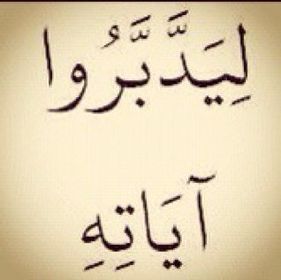 لِيَدَّبَّرُوا
آيَاتِهِ